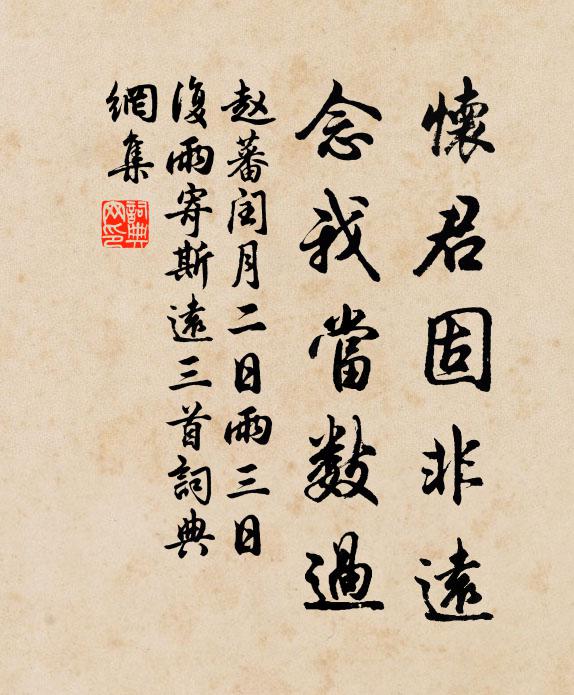 懷君固非遠
念我當數過
赵蕃闰月二日雨三日
復雨寄斯遠三首詞典
網集
詞典
网印